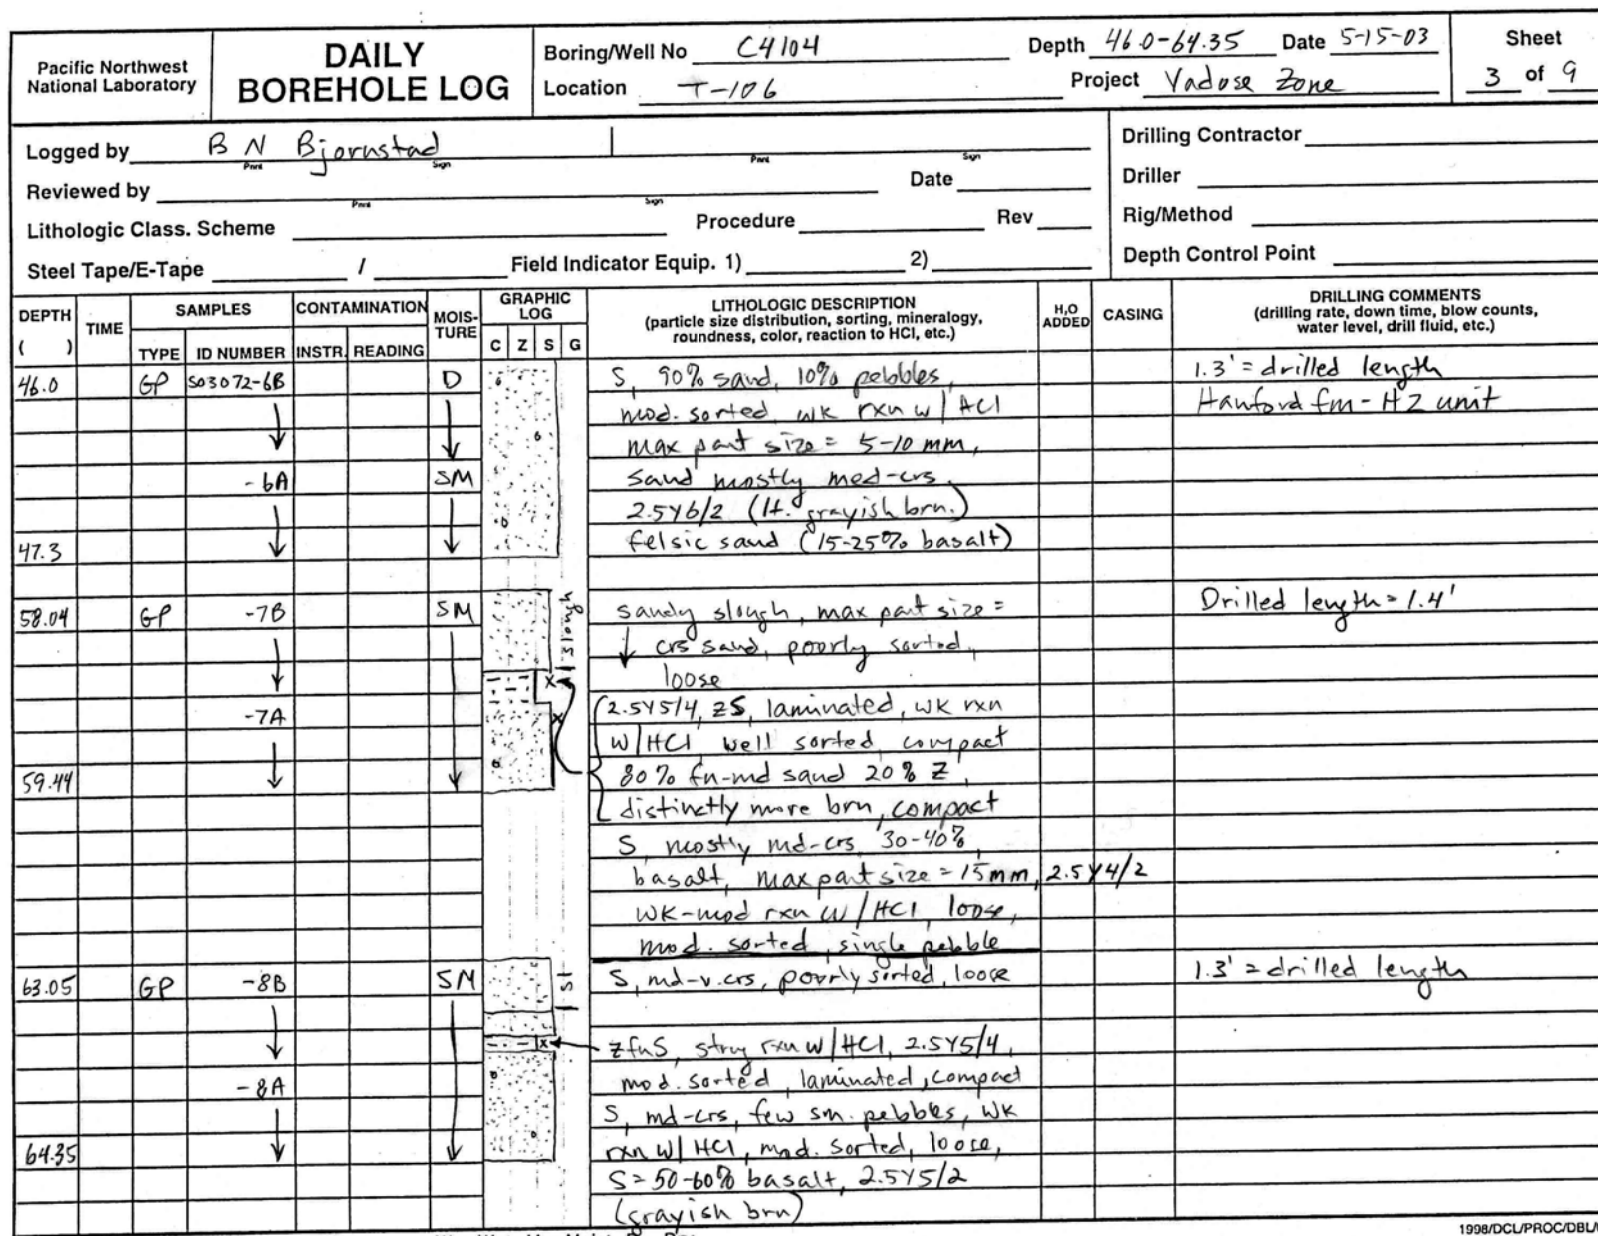 Pacific Northwest
National Laboratory
DAILY
BOREHOLE LOG
Boring/Well No C4104 Depth 46.0-64.35 Date 5-15-03
Location T-106 Project Vadose Zone
Sheet
3 of 9
Logged by B N Bjornstad
Print Sign Print Sign
Reviewed by Date
Print Sign
Lithologic Class. Scheme Procedure Rev
Steel Tape/E-Tape / Field Indicator Equip. 1) 2)
Drilling Contractor
Driller
Rig/Method
Depth Control Point
DEPTH
( )
TIME
SAMPLES
TYPE ID NUMBER
CONTAMINATION
INSTR. READING
MOIS-
TURE
GRAPHIC
LOG
C Z S G
LITHOLOGIC DESCRIPTION
(particle size distribution, sorting, mineralogy,
roundness, color, reaction to HCl, etc.)
H2O
ADDED
CASING
DRILLING COMMENTS
(drilling rate, down time, blow counts,
water level, drill fluid, etc.)
46.0 GP S03072-6B D S, 90% sand, 10% pebbles, 1.3' = drilled length
mod. sorted, wk rxn w/ HCl Hanford fm - H2 unit
max part size = 5-10 mm,
-6A SM sand mostly med-crs
2.5Y6/2 (lt. grayish brn.)
47.3 felsic sand (15-25% basalt)
58.04 GP -7B SM slough sandy slough, max part size = Drilled length = 1.4'
crs sand, poorly sorted,
loose
x
-7A x 2.5Y5/4, ZS, laminated, wk rxn
w/HCl, well sorted, compact
59.44 80% fn-md sand 20% Z,
distinctly more brn, compact
S, mostly md-crs, 30-40%
basalt, max part size = 15mm, 2.5Y4/2
wk-mod rxn w/HCl, loose,
mod. sorted, single pebble
63.05 GP -8B SM S S, md-v.crs, poorly sorted, loose 1.3' = drilled length
x zfnS, strng rxn w/HCl, 2.5Y5/4,
-8A mod. sorted, laminated, compact
S, md-crs, few sm. pebbles, wk
64.35 rxn w/ HCl, mod. sorted, loose,
S = 50-60% basalt, 2.5Y5/2
(grayish brn)